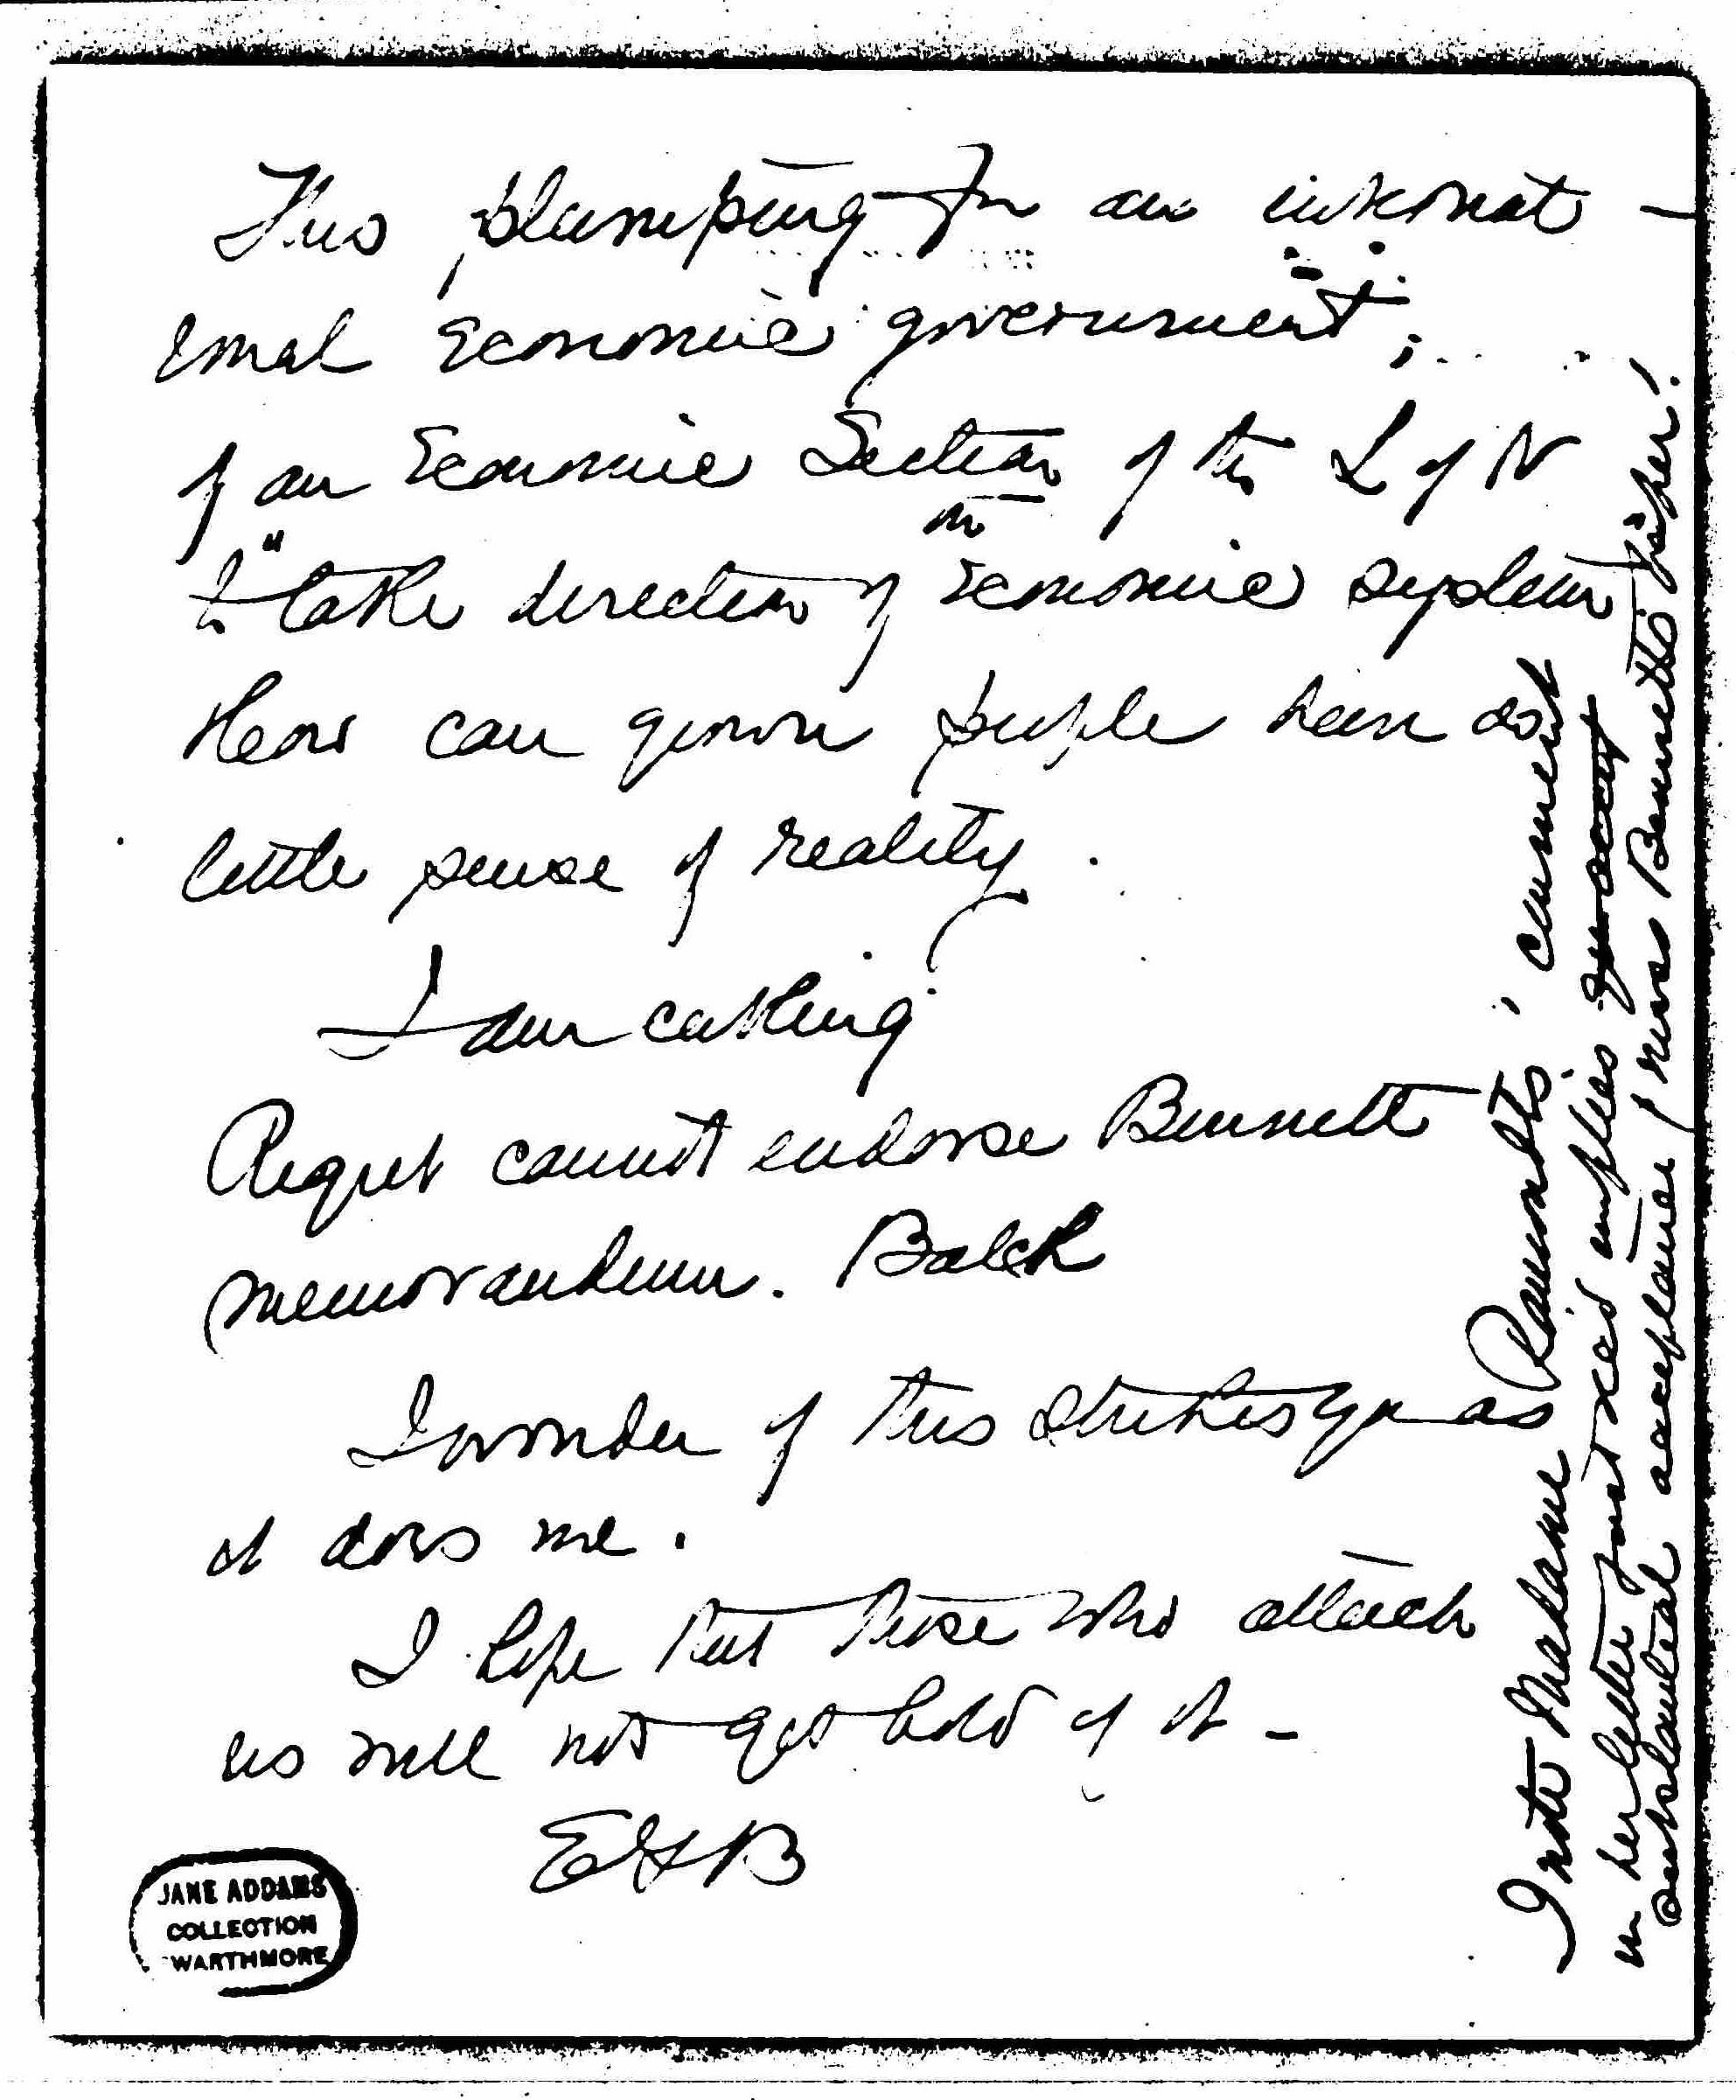 This plumping for an internat-
ional economic government,
of an Economic Section of the L of N
to "take direction of the economic system
How can grown people have so
little sense of reality.
I am cabling
Regret cannot endorse Bennett
memorandum. Balch
I wonder if this strikes you as
it does me.
I hope that those who attack
us will not get hold of it -
EGB
I note Madame Ramondts' comment
in her letter just rec'd implies
substantial acceptance / miss Bennetts paper!
JANE ADDAMS
COLLECTION
SWARTHMORE